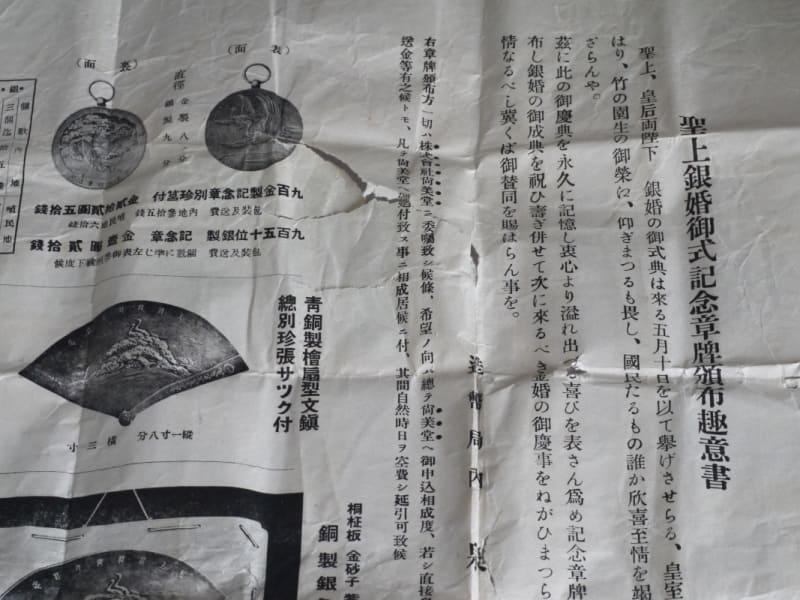 聖上銀婚御式記念章牌頒布趣意書
聖上、皇后両陛下 銀婚の御式典は來る五月十日を以て擧げさせらる、皇室
はり、竹の園生の御榮に、仰ぎまつるも畏し、國民たるもの誰か欣喜至情を竭
ざらんや。
茲に此の御慶典を永久に記憶し衷心より溢れ出づ 喜びを表さん爲め記念章牌
布し銀婚の御成典を祝ひ壽ぎ併せて次に來るべき金婚の御慶事をねがひまつら
情なるべし冀くば御賛同を賜はらん事を。
造幣局内 泉
右章牌頒布方一切ハ株式會社尙美堂ニ委囑致シ候條、希望ノ向ハ總テ尙美堂ヘ御申込相成度、若シ直接
送金等有之候トモ、凡テ尙美堂ヘ 付致ス事ニ相成居候ニ付、其間自然時日ヲ空費シ延引可致候
(面表)
直徑 金製八分 銀製九分
(面裏)
九百金製記念章別珍筥付 金貳拾貳圓五拾錢
包裝及送費 內地參拾五錢 植民地六拾錢
九百五十位銀製 記念章 金壹圓貳拾錢
包裝及送費 個數ニ準じ左表御 下度候
銀
個數
三個迄
內地
拾五
植民地
青銅製檜扇型文鎭
總別珍張サツク付
縱一寸八分 橫三寸
桐柾板 金砂子
銅製銀